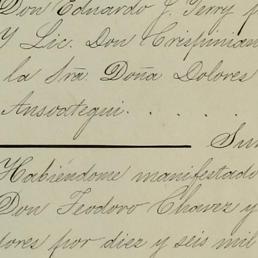 Don Eduardo J. Perry p
Y Lic. Don Crispinian
la Sra. Doña Dolores
Ansoategui. . . . .
Sum
Habiéndome manifestado
Don Teodoro Chavez y
dores por diez y seis mil